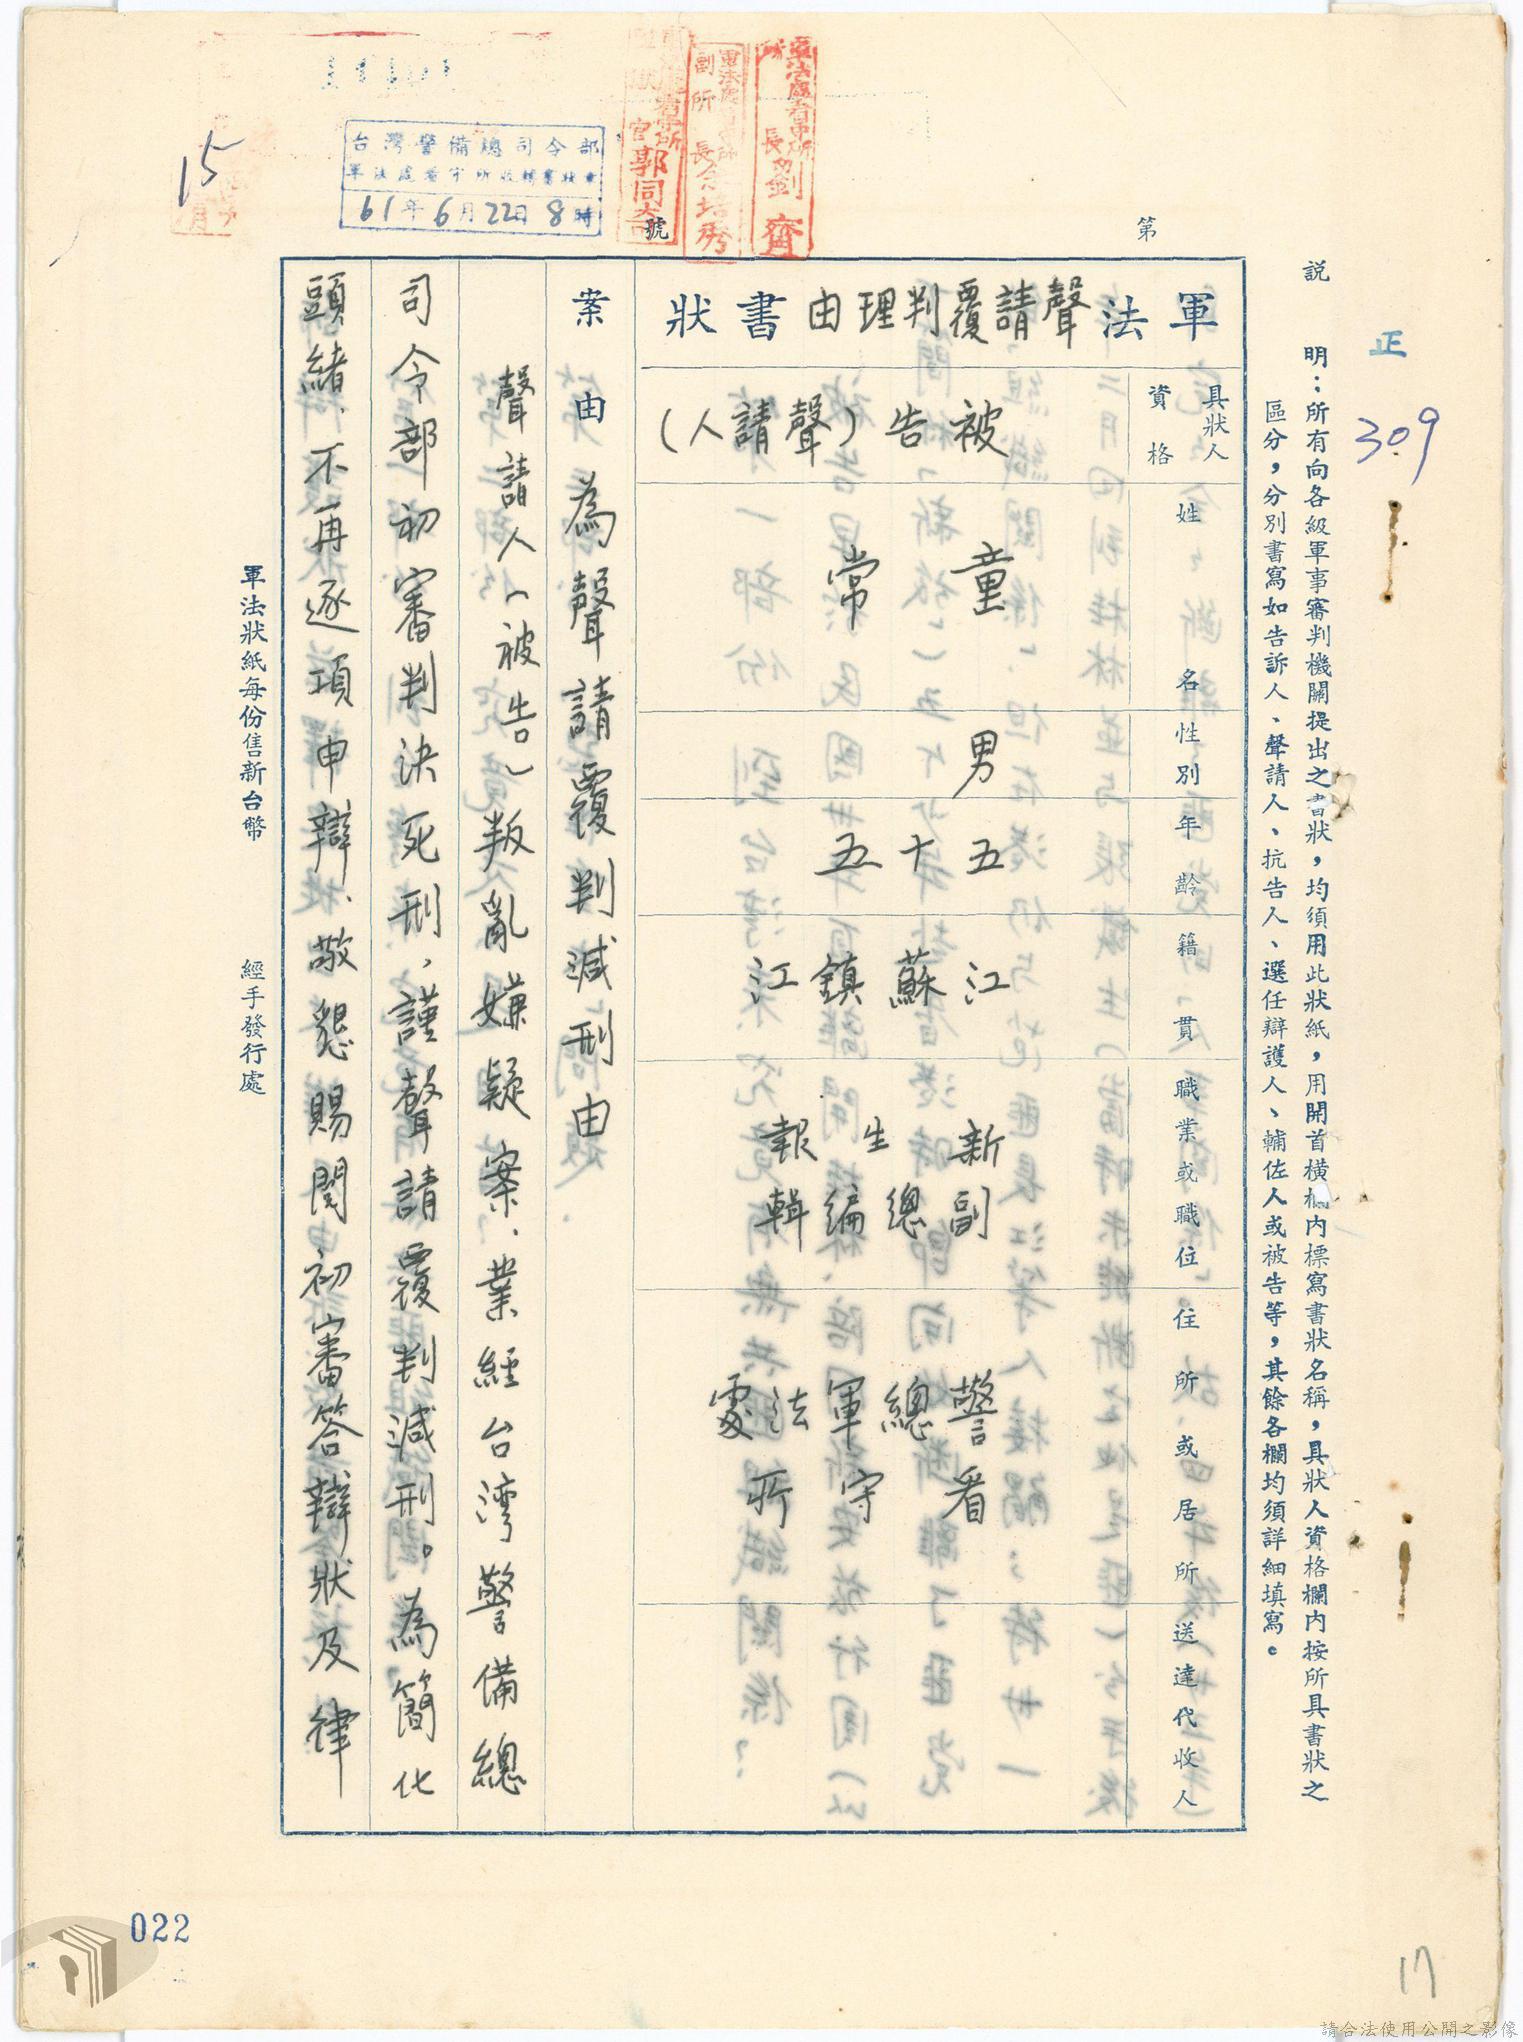 正
309
說明：所有向各級軍事審判機關提出之書狀，均須用此狀紙，用開首橫欄內標寫書狀名稱，具狀人資格欄內按所具書狀之
區分，分別書寫如告訴人、聲請人、抗告人、選任辯護人、輔佐人或被告等，其餘各欄均須詳細填寫。
第　號
軍法聲請覆判理由書狀
具狀人資格
被告（聲請人）
姓名
童常
性別
男
年齡
五十五
籍貫
江蘇鎮江
職業或職位
新生報
副總編輯
住所或居所
警總軍法處
看守所
送達代收人
案由為聲請覆判減刑由
聲請人（被告）叛亂嫌疑案、業經台灣警備總
司令部初審判決死刑，謹聲請覆判減刑。為簡化
頭緒、不再逐項申辯、敬懇賜閱初審答辯狀及律
軍法狀紙每份售新台幣　經手發行處
軍法處看守所
所長劉齊
軍法處看守所
副所長
看守所
官郭同奇
台灣警備總司令部
軍法處看守所收轉書狀章
61年6月22日8時
15
022
17
請合法使用公開之影像